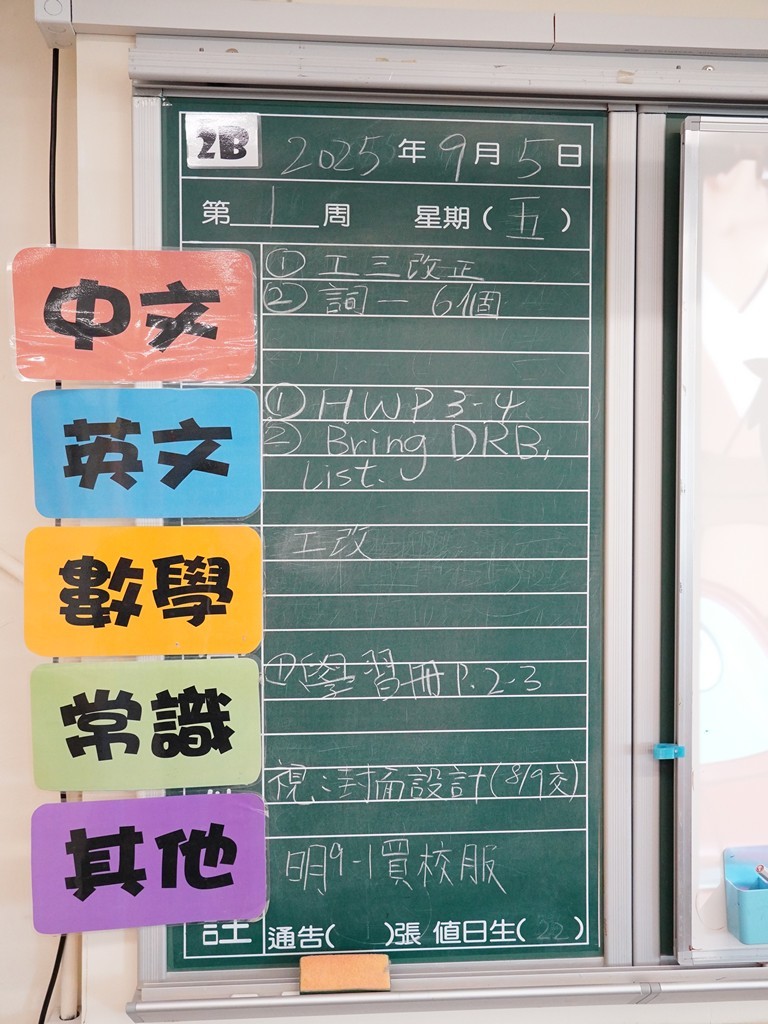 2B 2025年9月5日
第 1 周 星期(五)
中文
① 工三改正
② 詞一 6個
英文
① HWP 3-4
② Bring DRB,
List.
數學
工改
常識
① 學習冊 P. 2-3
其他
視:封面設計(8/9交)
明9-1買校服
註 通告( )張 值日生(22)